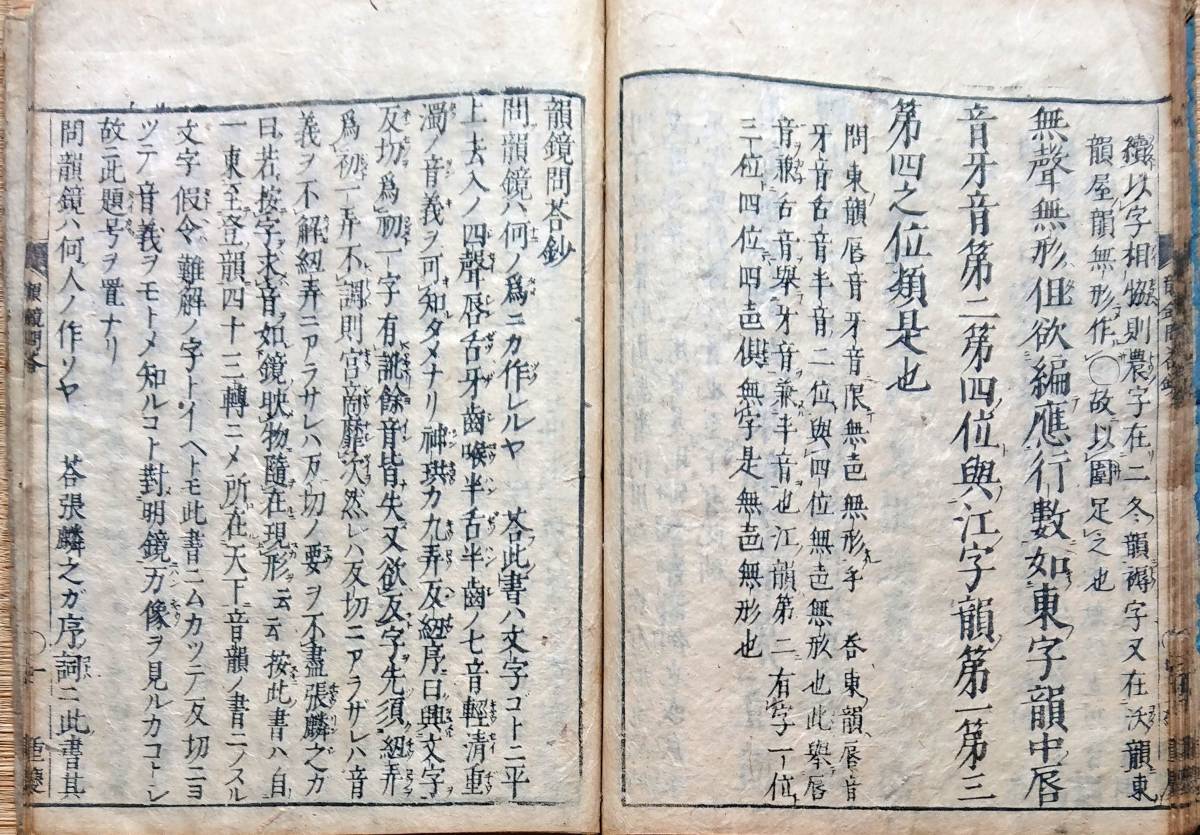 韻屋韻無形作〇故以圍足之也
無聲無形但欲編應行數如東字韻中唇
音牙音第二第四位與江字韻第一第三
第四之位類是也
問東韻唇音牙音限無𠁅無形乎 荅東韻唇音
牙音舌音半音二位與四位無𠁅無形也此舉唇
音兼舌音舉牙音兼半音也江韻第二有字一位
三位四位四𠁅俱無字是無𠁅無形也
韻鏡問荅鈔
問韻鏡ハ何ノ爲ニカ作レルヤ 荅此書ハ文字コトニ平
上去入ノ四聲唇舌牙齒喉半舌半齒ノ七音輕清重
濁ノ音義ヲ可知タメナリ神珙カ九弄反紐序曰典文字
反切爲初一字有訛餘音皆失又欲反字先須紐弄
爲初一弄不調則宮商靡次然レハ反切ニアラサレハ音
義ヲ不解紐弄ニアラサレハ反切ノ要ヲ不盡張麟之カ
曰若按字求音如鏡映物隨在現形云云按此書ハ自
一東至登韻四十三轉ニメ所在天下音韻ノ書ニノスル
文字假令難解ノ字トイヘトモ此書ニムカツテ反切ニヨ
ツテ音義ヲモトメ知ルコト對明鏡万像ヲ見ルカコトシ
故ニ此題号ヲ置ナリ
問韻鏡ハ何人ノ作ソヤ 荅張麟之ガ序詞ニ此書其